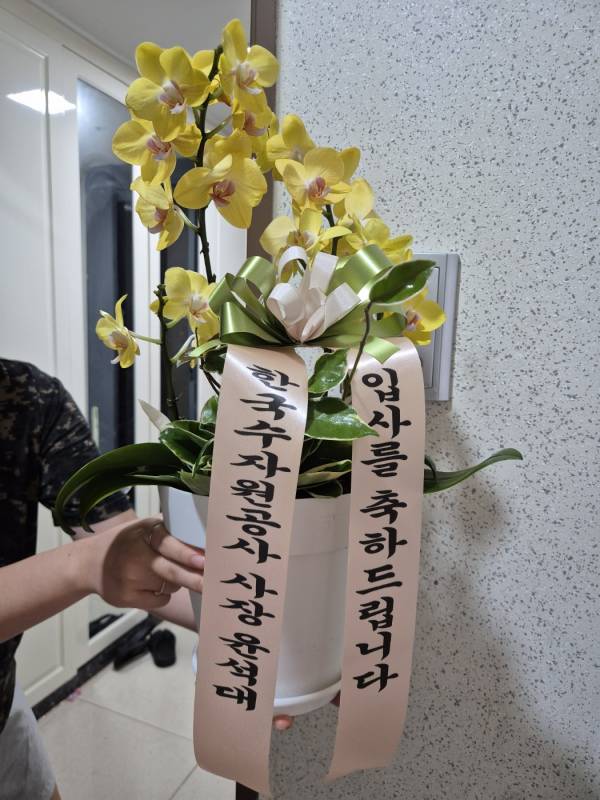 한국수자원공사 사장 윤석대
입사를 축하드립니다